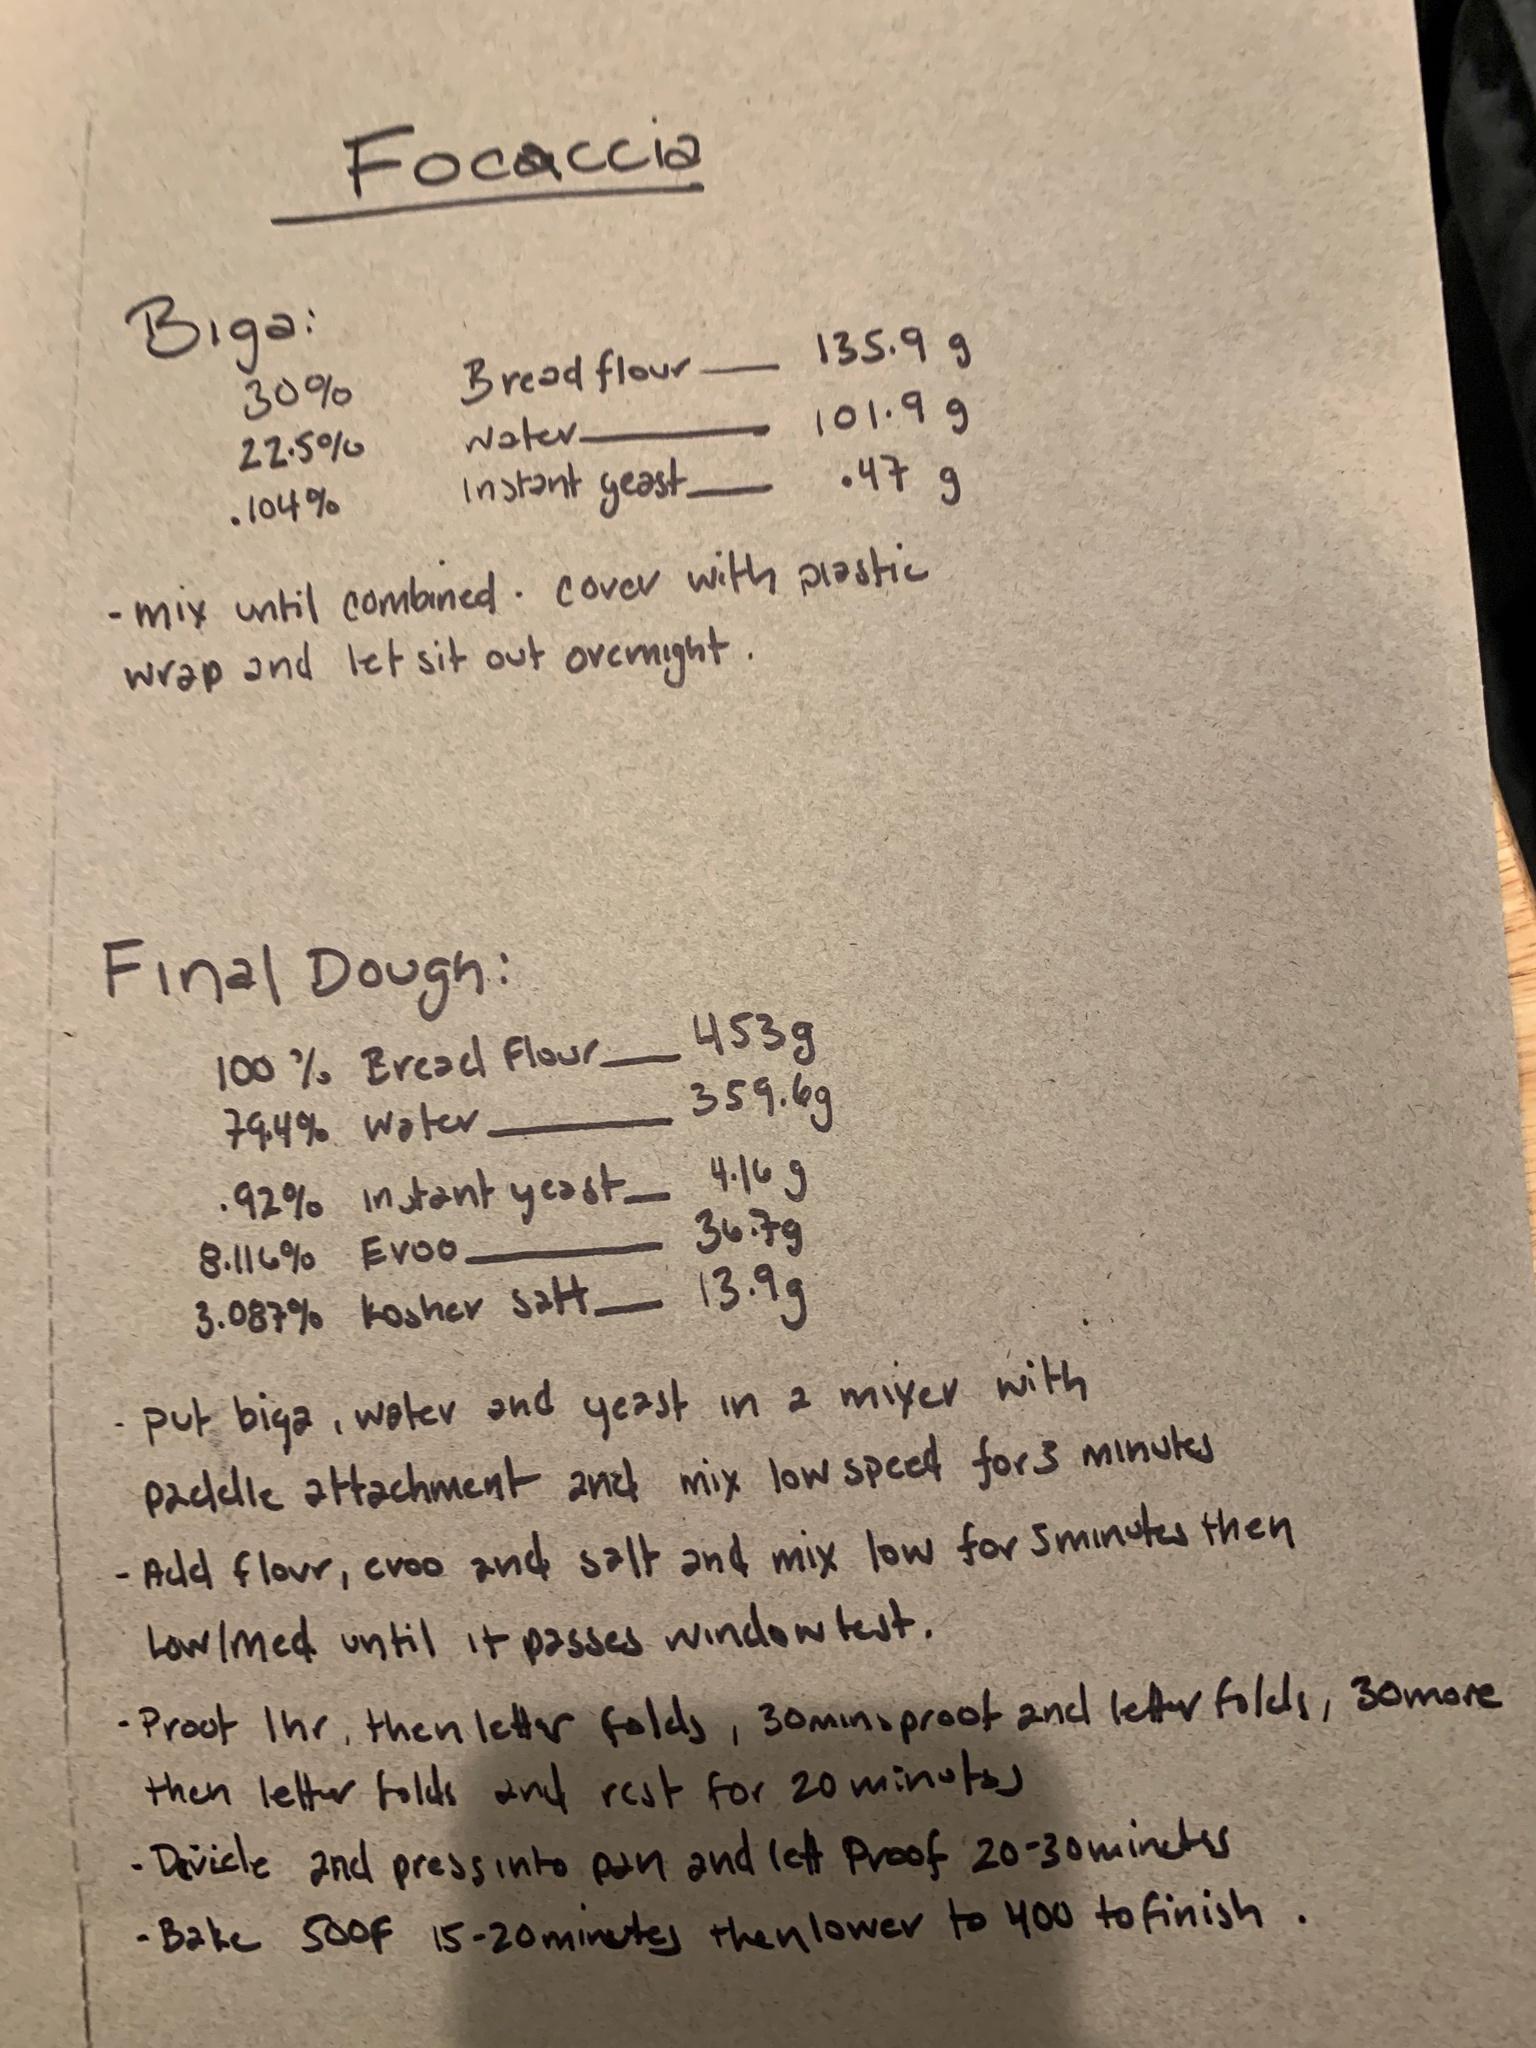 Focaccia
Biga:
30% Bread flour — 135.9 g
22.5% water — 101.9 g
.104% instant yeast — .47 g
- mix until combined. cover with plastic
wrap and let sit out overnight.
Final Dough:
100% Bread Flour — 453g
79.4% water — 359.6g
.92% instant yeast — 4.16 g
8.116% Evoo — 36.7g
3.087% Kosher Salt — 13.9g
- put biga, water and yeast in a mixer with
paddle attachment and mix low speed for 3 minutes
- Add flour, evoo and salt and mix low for 5 minutes then
Low/Med until it passes window test.
- Proof 1hr, then letter folds, 30 mins proof and letter folds, 30 more
then letter folds and rest for 20 minutes
- Divide and press into pan and lett Proof 20-30 minutes
- Bake 500F 15-20 minutes then lower to 400 to finish.